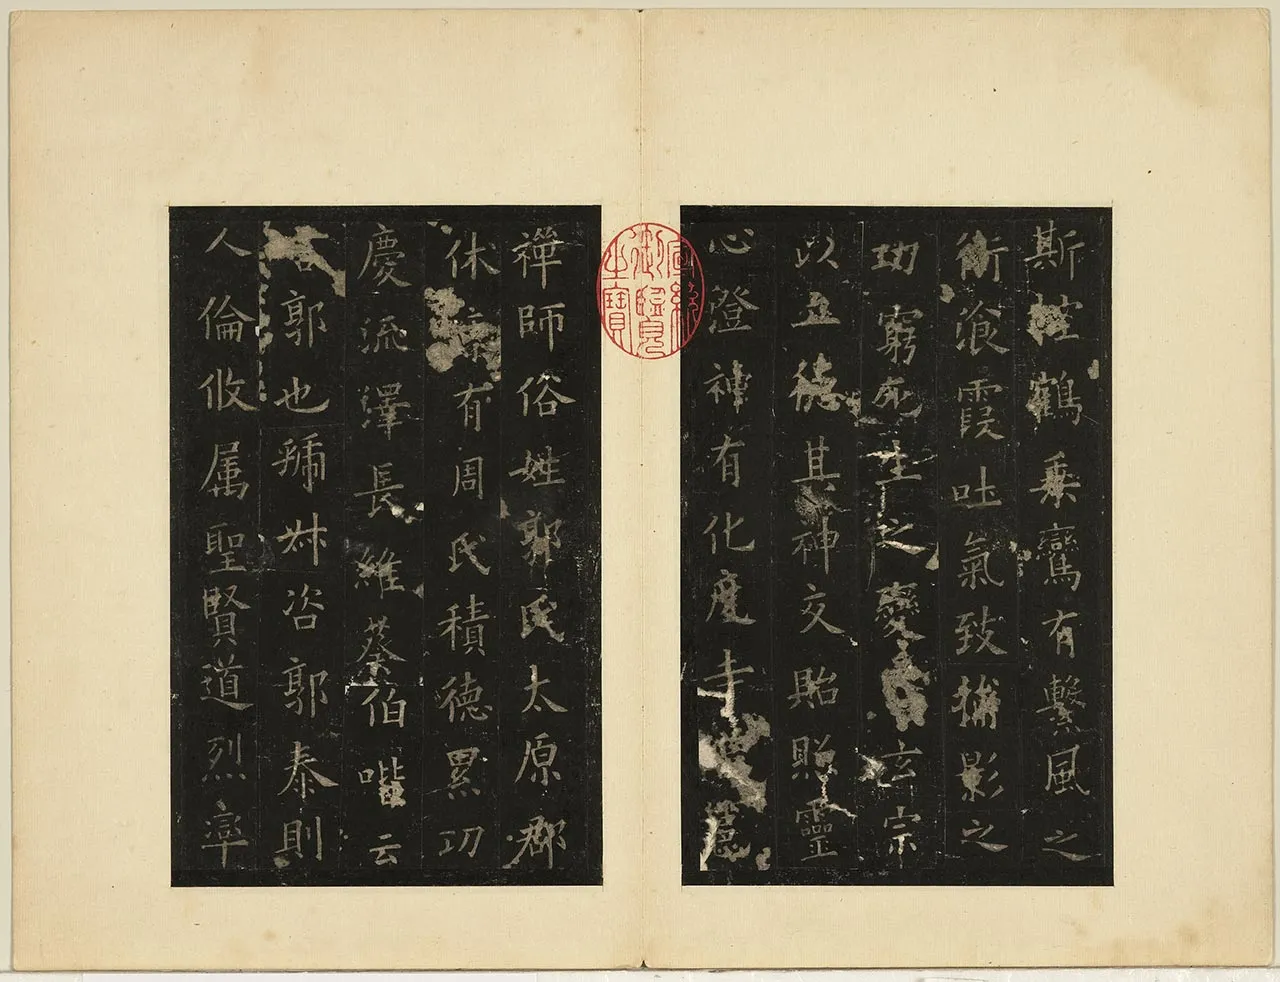 斯控鶴乘鸞有繫風之
術飡霞吐氣致捕影之
功窮死生之變玄宗
以立德其神交貽照靈
心澄神有化度寺
宣統
御覽
之寶
禪師俗姓郭氏太原郡
休有周氏積德累功
慶流澤長維蔡伯喈云
郭也虢叔咨郭泰則
人倫攸属聖賢道烈率